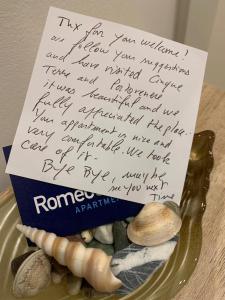 Tnx for your welcome!
we follow your suggestions
and have visited Cinque
Terre and Portovenere
it was beautiful and we
fully appreciated the place.
Your appartment is nice and
very comfortable. We took
care of it.
Bye Bye, maybe
see you next
Time
Rome
APARTME